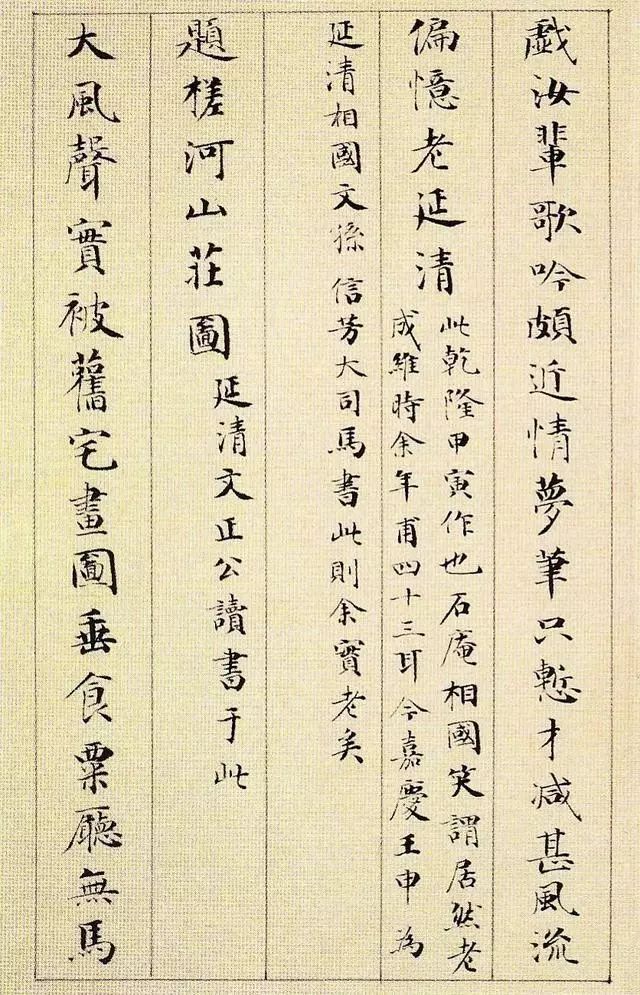 戲汝輩歌吟頗近情夢筆只慙才減甚風流
偏憶老延清
此乾隆甲寅作也石庵相國笑謂居然老
成維時余年甫四十三耳今嘉慶壬申為
延清相國文孫信芳大司馬書此則余實老矣
題槎河山莊圖
延清文正公讀書于此
大風聲實被舊宅畫圖垂食粟廳無馬